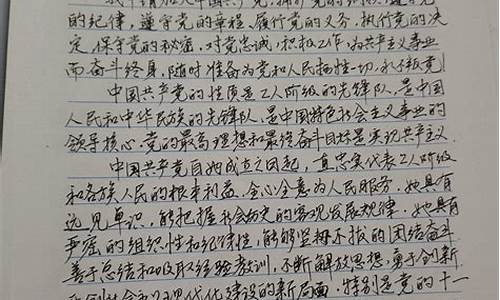 我申请加入中国共产党,拥护党的纲领,遵守党
的纪律,遵守党的章程,履行党的义务,执行党的决
定,保守党的秘密,对党忠诚,积极工作,为共产主义事业
而奋斗终身,随时准备为党和人民牺牲一切,永不叛党!
中国共产党的性质是工人阶级的先锋队,是中国
人民和中华民族的先锋队,是中国特色社会主义事业的
领导核心.党的最高理想和最终奋斗目标是实现共产主义.
中国共产党自她成立之日起,直忠实代表工人阶级
和各族人民的根本利益,全心全意为人民服务.她具有
远见卓识,能把握社会历史的客观发展规律.她具有
严密的组织性和纪律性,能够坚持不拔的团结奋斗
善于总结和吸取经验教训,不断解放思想,勇于创新
社会主义现代化建设的新局面,特别是党的十一